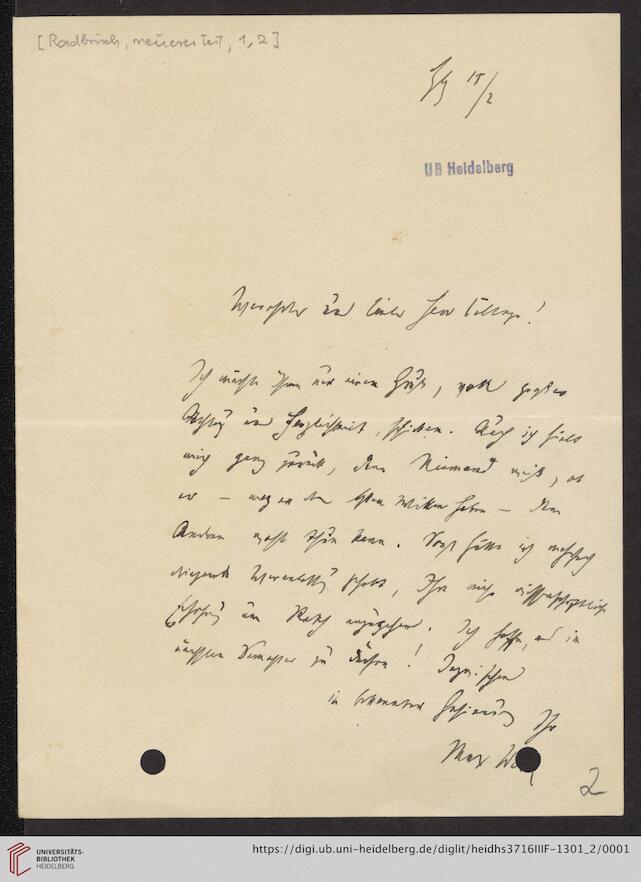 [Radbruch, neuerer Teil, 1,2]
Hbg 15/2
UB Heidelberg
Verehrter und lieber Herr College!
Ich möchte Ihnen nur einen Gruß, voll großer
Achtung und Herzlichkeit, schicken. Auch ich hielt
mich ganz zurück, denn Niemand weiß, ob
er – mag er den besten Willen haben – dem
Anderen wohl thun kann. Sonst hätte ich mehrfach
dringende Veranlassung gehabt, Ihre
um Rath anzugehen. Ich hoffe, es im
nächsten Semester zu dürfen! Inzwischen
in bekannter Gesinnung Ihr
Max Weber
2
UNIVERSITÄTS-
BIBLIOTHEK
HEIDELBERG
https://digi.ub.uni-heidelberg.de/diglit/heidhs3716IIIF-1301_2/0001